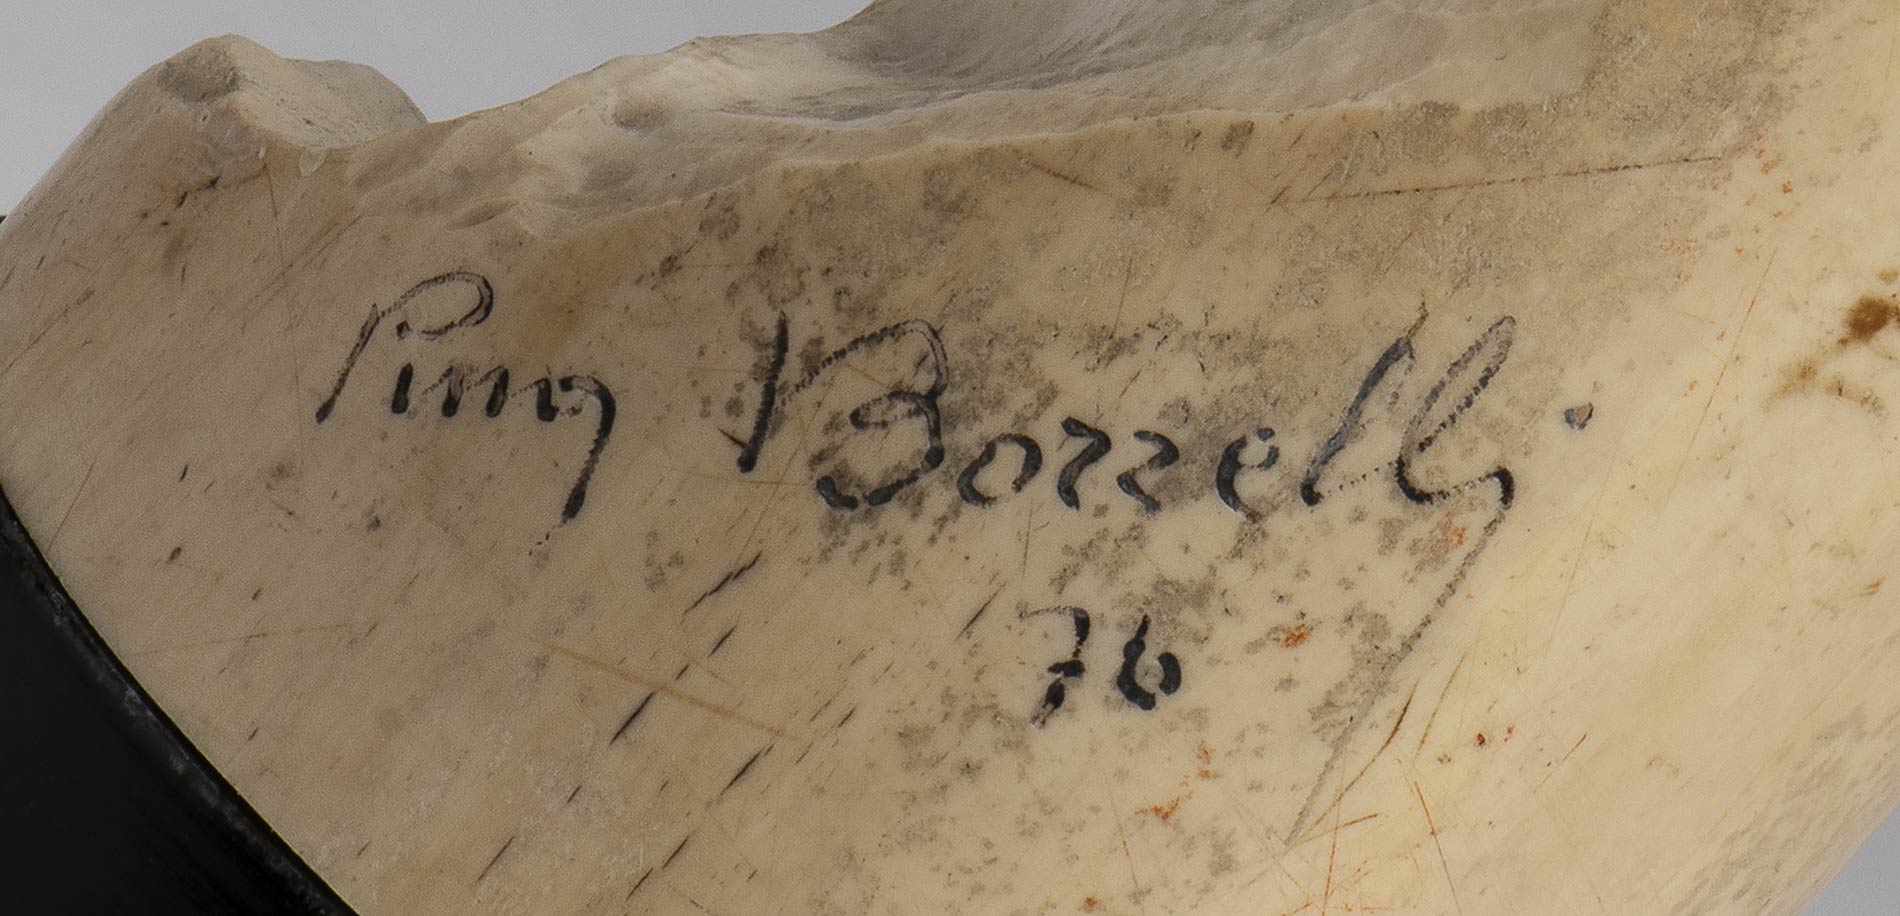 Pino Borrelli
76